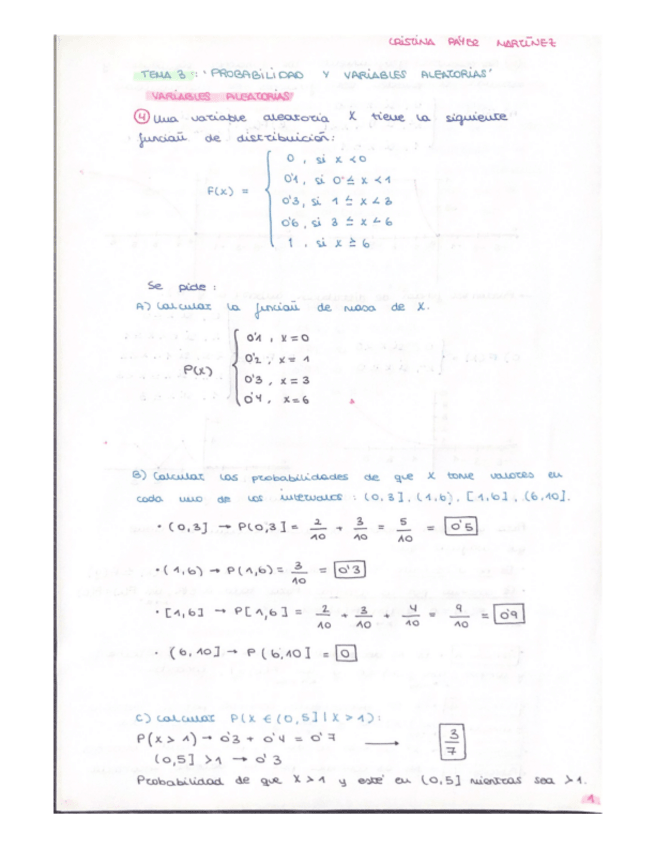 CRISTINA PAYER MARTÍNEZ
TEMA 3: 'PROBABILIDAD Y VARIABLES ALEATORIAS'
VARIABLES ALEATORIAS
④ Una variable aleatoria X tiene la siguiente
función de distribución:
0 , si x < 0
0'1, si 0 ≤ x < 1
F(x) = 0'3, si 1 ≤ x < 3
0'6, si 3 ≤ x < 6
1 , si x ≥ 6
Se pide:
A) Calcular la función de masa de X.
0'1 , x = 0
0'2 , x = 1
P(x)
0'3 , x = 3
0'4 , x = 6
B) Calcular las probabilidades de que X tome valores en
cada uno de los intervalos: (0,3], (1,6), [1,6], (6,10].
· (0,3] → P(0,3] = 2/10 + 3/10 = 5/10 = 0'5
· (1,6) → P(1,6) = 3/10 = 0'3
· [1,6] → P[1,6] = 2/10 + 3/10 + 4/10 = 9/10 = 0'9
· (6,10] → P(6,10] = 0
C) Calcular P(X ∈ (0,5] | X > 1):
P(X > 1) → 0'3 + 0'4 = 0'7 → 3/7
(0,5] > 1 → 0'3
Probabilidad de que X > 1 y esté en (0,5] mientras sea > 1.
1